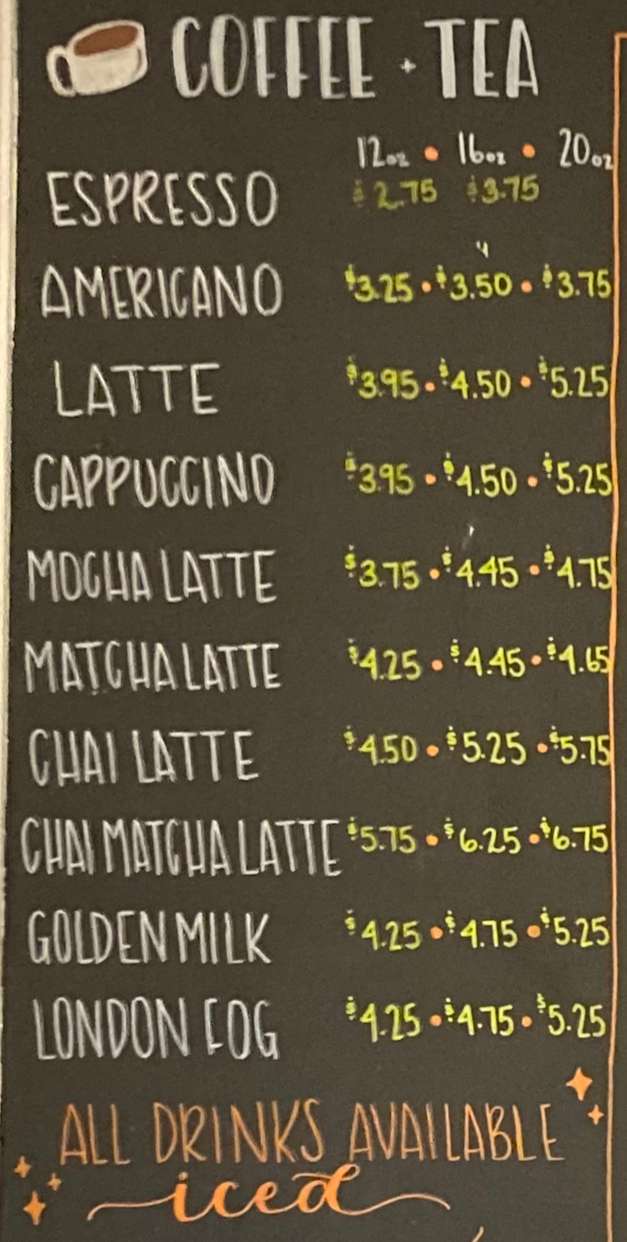 COFFEE + TEA
12oz • 16oz • 20oz
ESPRESSO $2.75 $3.75
AMERICANO $3.25 • $3.50 • $3.75
LATTE $3.95 • $4.50 • $5.25
CAPPUCCINO $3.95 • $4.50 • $5.25
MOCHA LATTE $3.75 • $4.45 • $4.75
MATCHA LATTE $4.25 • $4.45 • $4.65
CHAI LATTE $4.50 • $5.25 • $5.75
CHAI MATCHA LATTE $5.75 • $6.25 • $6.75
GOLDEN MILK $4.25 • $4.75 • $5.25
LONDON FOG $4.25 • $4.75 • $5.25
ALL DRINKS AVAILABLE
iced